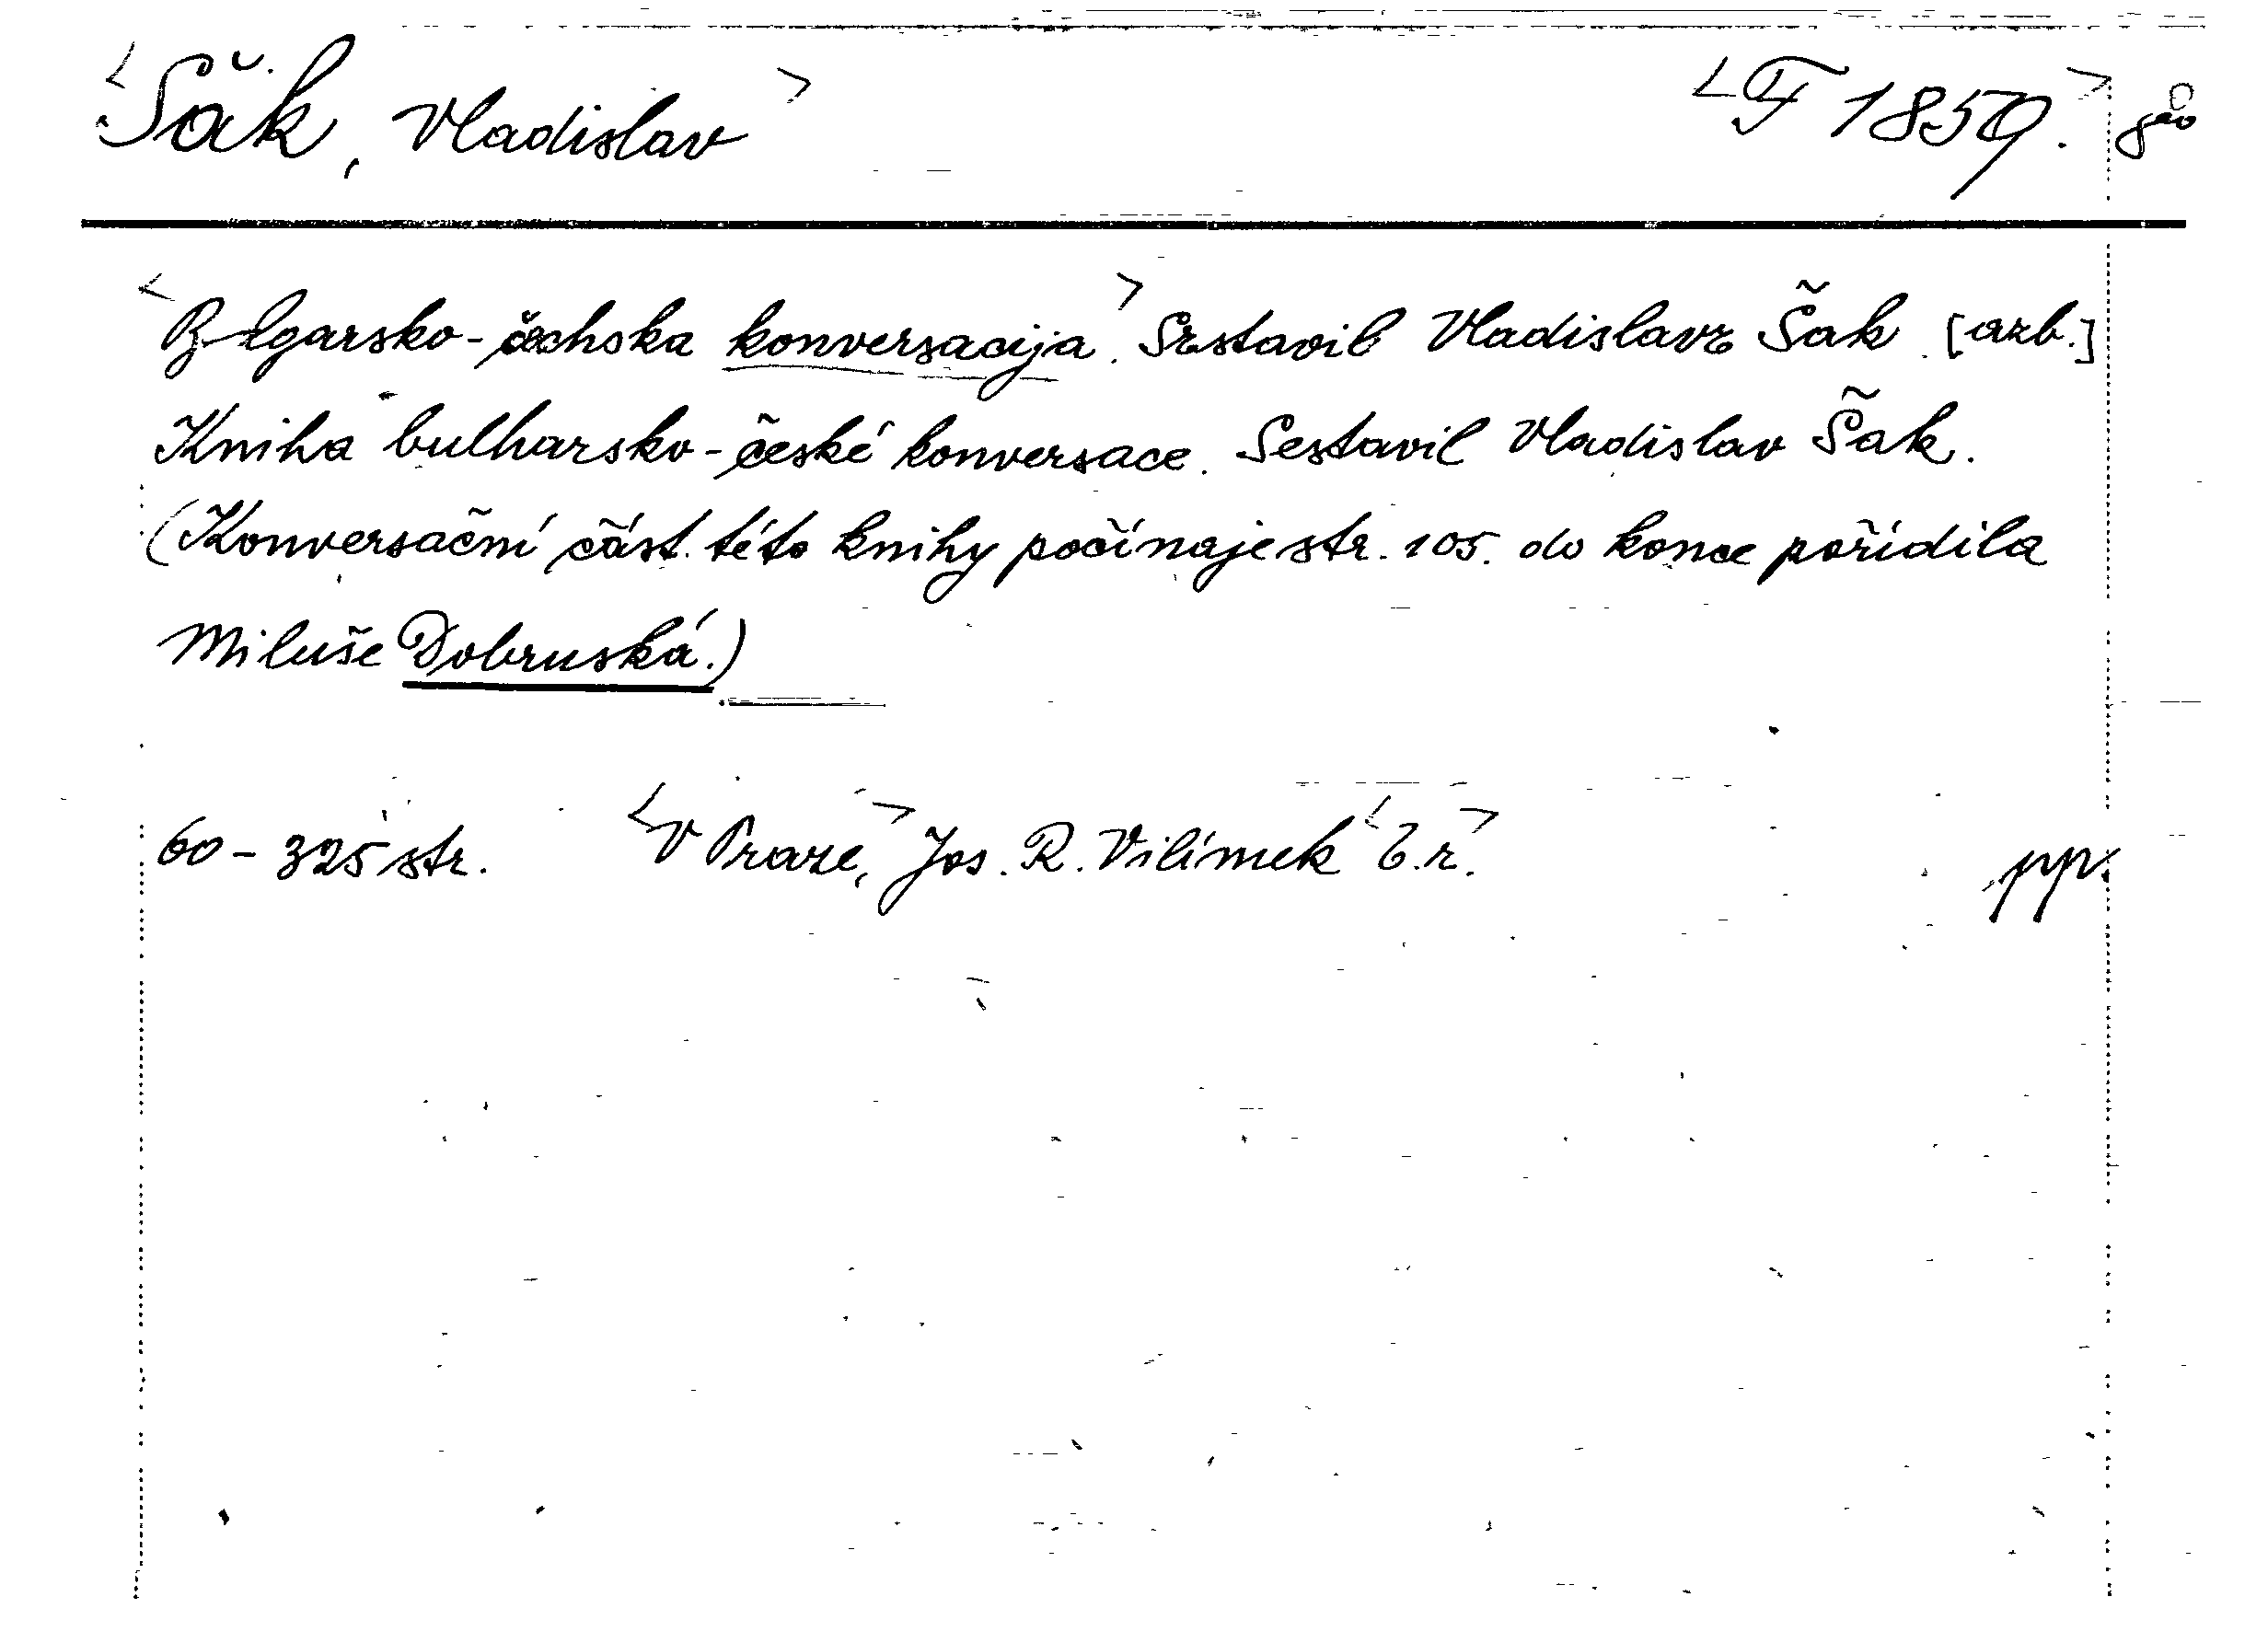 <Šák, Vladislav> <F 1859.> 8°
<Bъlgarsko-čechska konversacija.> Sъstavil Vladislavъ Šak. [azb.]
Kniha bulharsko-české konversace. Sestavil Vladislav Šak.
(Konversační část této knihy počínaje str. 105. do konce pořídila
Miluše Dobruská.)
60-325 str. <V Praze,> Jos. R. Vilímek <b.r.> pp.